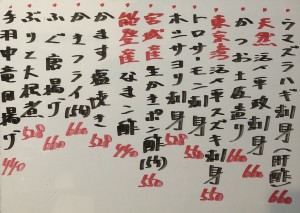 ウマズラハギ刺身(肝酢)
天然 活〆平政刺身 660
かつお土佐造り 660
東京湾 活〆平スズキ刺身 550
トロサーモン刺身 550
ホッサヨリ刺身 660
宮城産 生かきポン酢(5ヶ) 550
能登産 なまこ酢 440
かます塩焼き 528
かきフライ(5ヶ) 660
ふぐ唐揚げ 660
ぶりと大根煮 528
手羽中竜田揚げ 440